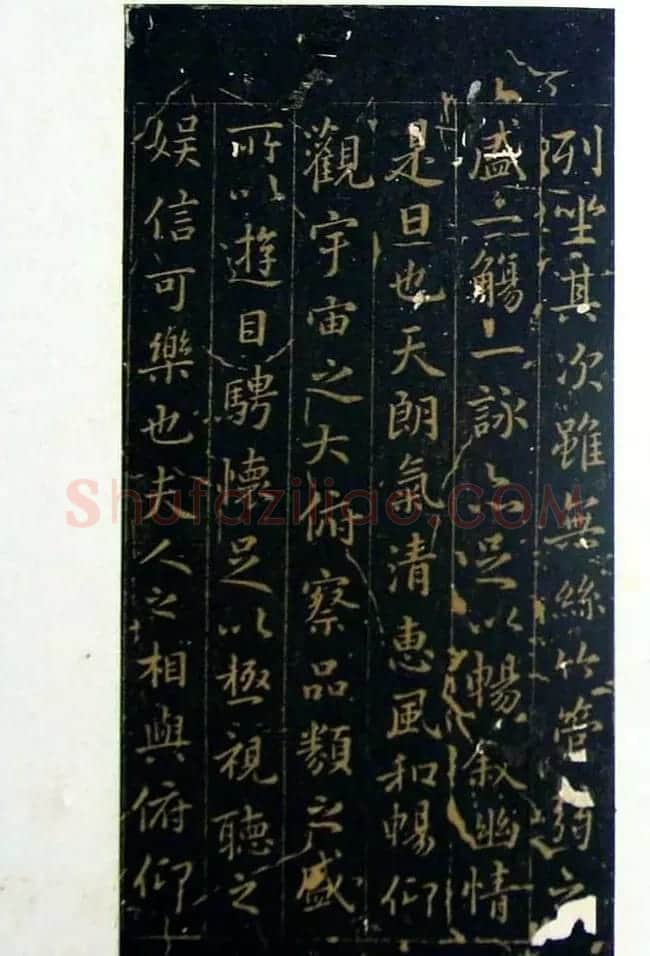 列坐其次雖無絲竹管弦之
盛一觴一詠亦足以暢敘幽情
是日也天朗氣清惠風和暢仰
觀宇宙之大俯察品類之盛
所以遊目騁懷足以極視聽之
娛信可樂也夫人之相與俯仰
Shufaziliao.COM